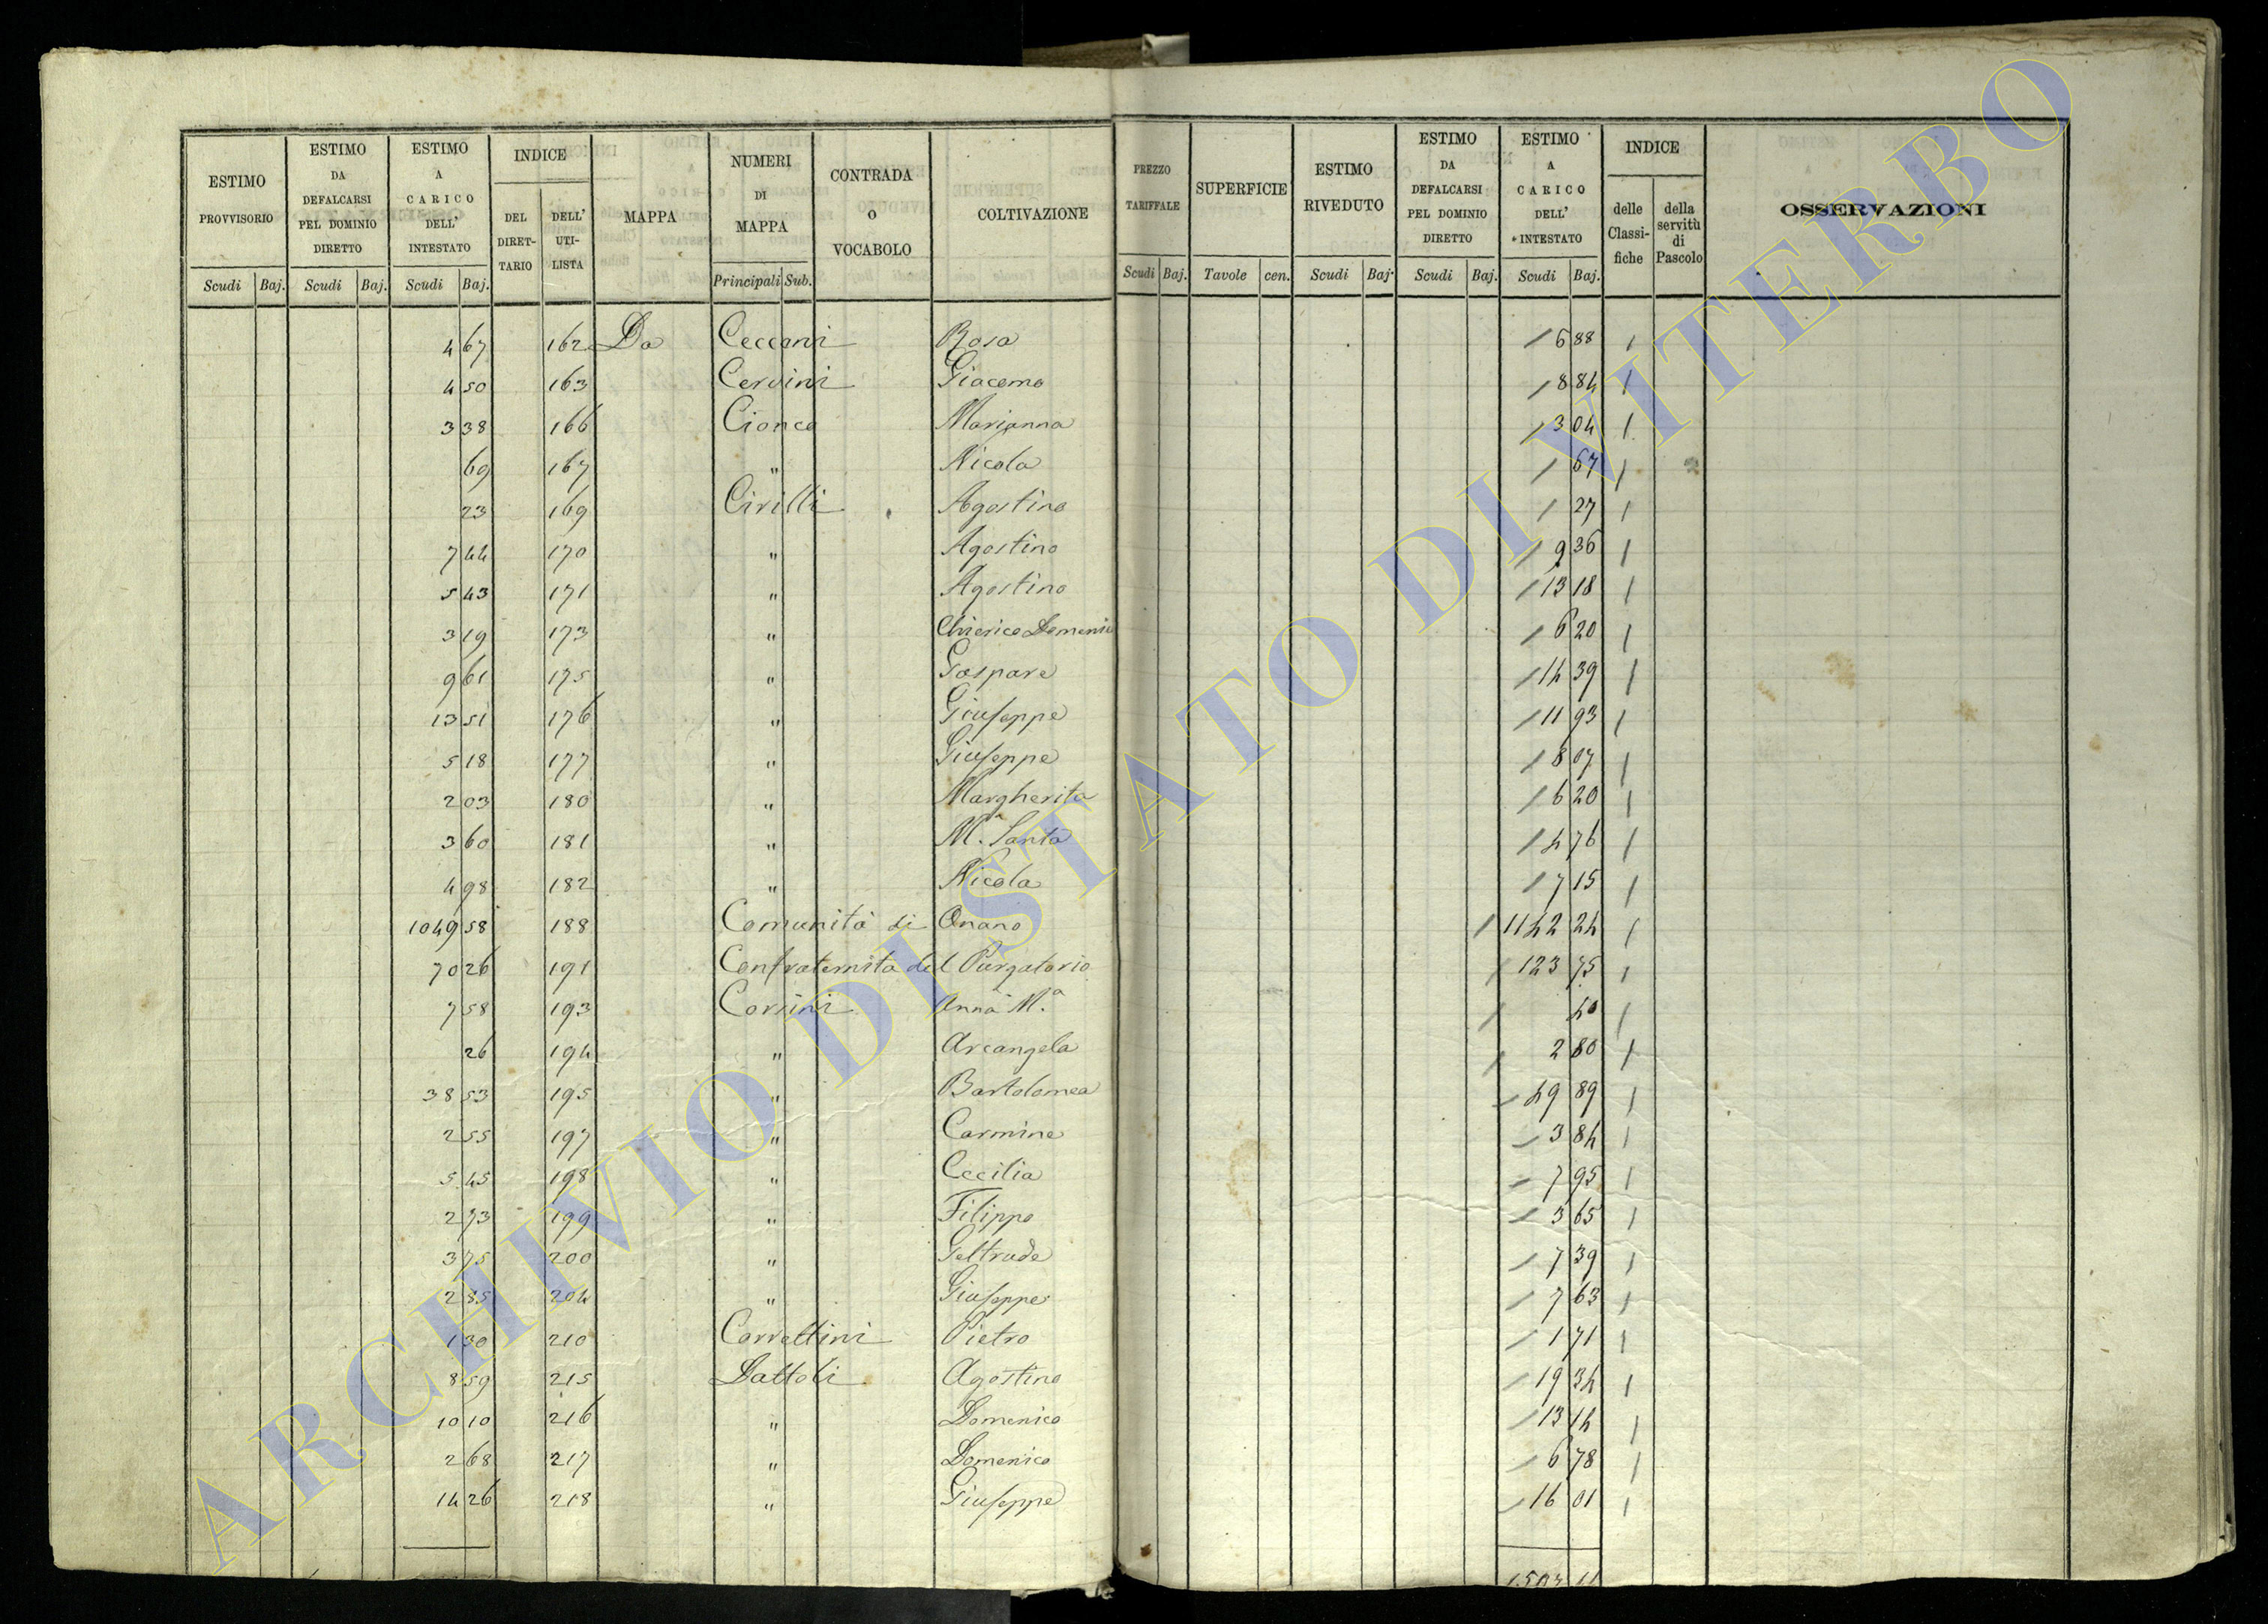 ESTIMO PROVVISORIO Scudi Baj.
ESTIMO DA DEFALCARSI PEL DOMINIO DIRETTO Scudi Baj.
ESTIMO A CARICO DELL' INTESTATO Scudi Baj.
INDICE DEL DIRET- TARIO DELL' UTI- LISTA
MAPPA
NUMERI DI MAPPA Principali Sub.
CONTRADA O VOCABOLO
COLTIVAZIONE
PREZZO TARIFFALE Scudi Baj.
SUPERFICIE Tavole cen.
ESTIMO RIVEDUTO Scudi Baj.
ESTIMO DA DEFALCARSI PEL DOMINIO DIRETTO Scudi Baj.
ESTIMO A CARICO DELL' INTESTATO Scudi Baj.
INDICE delle Classi- fiche della servitù di Pascolo
OSSERVAZIONI
4 67 162 Da Ceccani Rosa / 6 88 /
4 50 163 Cervini Giacomo / 8 84 /
3 38 166 Cionco Marianna / 3 04 /
69 167 " Nicola / 67 /
23 169 Cirilli Agostino / 27 /
7 44 170 " Agostino / 9 36 /
5 43 171 " Agostino / 13 18 /
3 19 173 " Chierico Domenico / 6 20 /
9 61 175 " Gaspare / 14 39 /
13 51 176 " Giuseppe / 11 93 /
5 18 177 " Giuseppe / 8 07 /
2 03 180 " Margherita / 6 20 /
3 60 181 " M.ª Santa / 4 76 /
4 98 182 " Nicola / 7 15 /
1049 58 188 Comunità di Onano / 1142 24 /
70 26 191 Confraternita del Purgatorio / 123 75 /
7 58 193 Corsini Anna M.ª / 40 /
26 194 " Arcangela / 2 80 /
38 53 195 " Bartolomea / 49 89 /
2 55 197 " Carmine / 3 84 /
5 45 198 " Cecilia / 7 95 /
2 73 199 " Filippo / 3 65 /
3 75 200 " Geltrude / 7 39 /
2 85 204 " Giuseppe / 7 63 /
1 30 210 Correttini Pietro / 1 71 /
8 59 215 Dattoli Agostino / 19 34 /
10 10 216 " Domenico / 13 14 /
2 68 217 " Domenico / 6 78 /
14 26 218 " Giuseppe / 16 01 /
ARCHIVIO DI STATO DI VITERBO